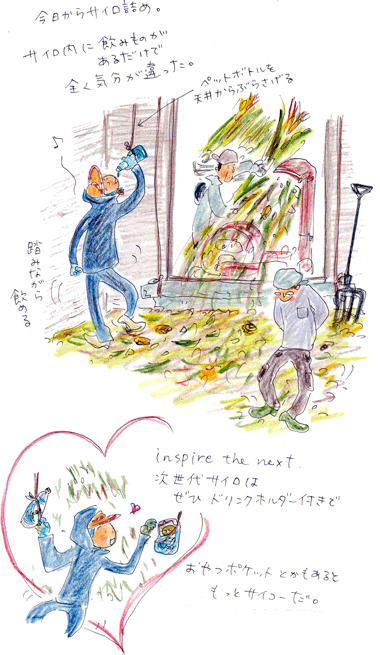 今日からサイロ詰め。
サイロ内に飲みものが
あるだけで
全く気分が違った。
ペットボトルを
天井からぶらさげる
♪
踏みながら
飲める
inspire the next.
次世代サイロは
ぜひドリンクホルダー付きで
おやつポケットとかもあると
もっとサイコーだ。